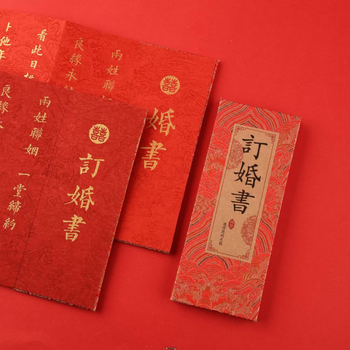 看此日桃
卜他年
兩姓聯姻
良緣永
訂婚書
兩姓聯姻 一堂締約
良緣永
訂婚書
訂婚書